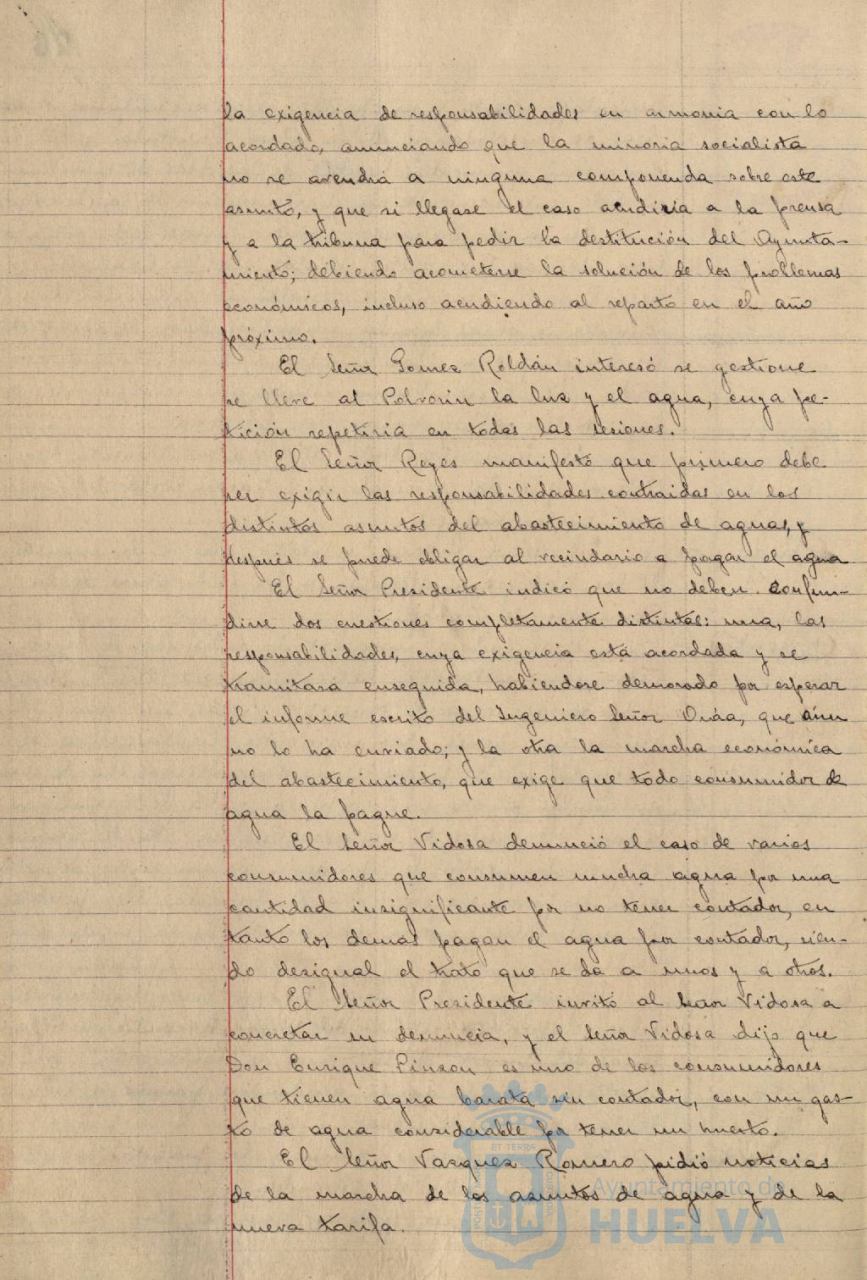 la exigencia de responsabilidades en armonia con lo
acordado, anunciando que la minoria socialista
no se avendrá a ninguna componenda sobre este
asunto, y que si llegase el caso acudiria a la prensa
y a la tribuna para pedir la destitución del Ayunta-
miento; debiendo acometerse la solución de los problemas
económicos, incluso acudiendo al reparto en el año
próximo.
El Señor Gomez Roldán interesó se gestione
se lleve al Polvorin la luz y el agua, cuya pe-
tición repetiria en todas las sesiones.
El Señor Reyes manifestó que primero debe
ser exigir las responsabilidades contraidas en los
distintos asuntos del abastecimiento de aguas, y
despues se puede obligar al vecindario a pagar el agua
El Señor Presidente indicó que no deben confun-
dirse dos cuestiones completamente distintas: una, las
responsabilidades, cuya exigencia está acordada y se
tramitara enseguida, habiendose demorado por esperar
el informe escrito del Ingeniero Señor que aún
no lo ha enviado; y la otra la marcha económica
del abastecimiento, que exige que todo consumidor de
agua la pague.
El Señor Vidosa denunció el caso de varios
consumidores que consumen mucha agua por una
cantidad insignificante por no tener contador, en
tanto los demas pagan el agua por contador, sien-
do desigual el trato que se da a unos y a otros.
El Señor Presidente invitó al señor Vidosa a
concretar su denuncia, y el Señor Vidosa dijo que
Don Enrique Pinzon es uno de los consumidores
que tienen agua barata sin contador, con un gas-
to de agua considerable por tener un huerto.
El Señor Vazquez Romero pidió noticias
de la marcha de los asuntos de agua y de la
nueva tarifa.
Ayuntamiento de
HUELVA